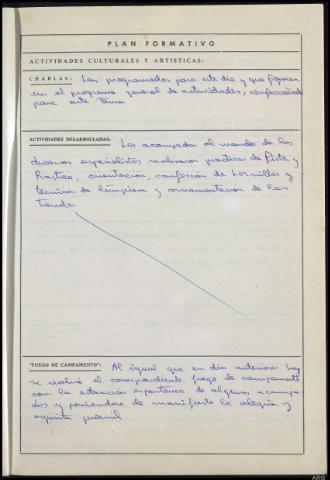 PLAN FORMATIVO
ACTIVIDADES CULTURALES Y ARTISTICAS:
CHARLAS: Las programadas para este dia y que figuran
en el programa general de actividades, confeccionado
para este
ACTIVIDADES DESARROLLADAS: Los acampados al mando de los
diversos especialistas realizaron practicas de Pista y
Rastreo, orientación, confección de tornillos y
técnica de limpieza y ornamentacion de las
tiendas
"FUEGO DE CAMPAMENTO": Al igual que en dias anteriores hoy
se realizó el correspondiente fuego de campamento
con la actuacion espontánea de algunos acampa-
dos y poniendose de manifiesto la alegria y
espiritu juvenil
ARG